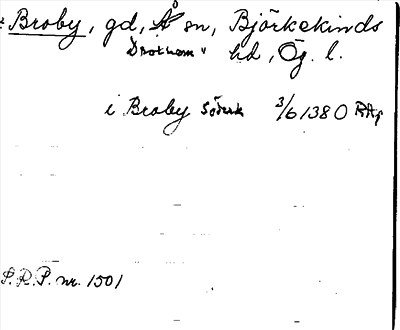 Broby, gd, Å sn, Björkekinds
Drothem " hd, Ög. l.
i Broby Söderk 3/6 1380 RAp
S.R.P. nr. 1501